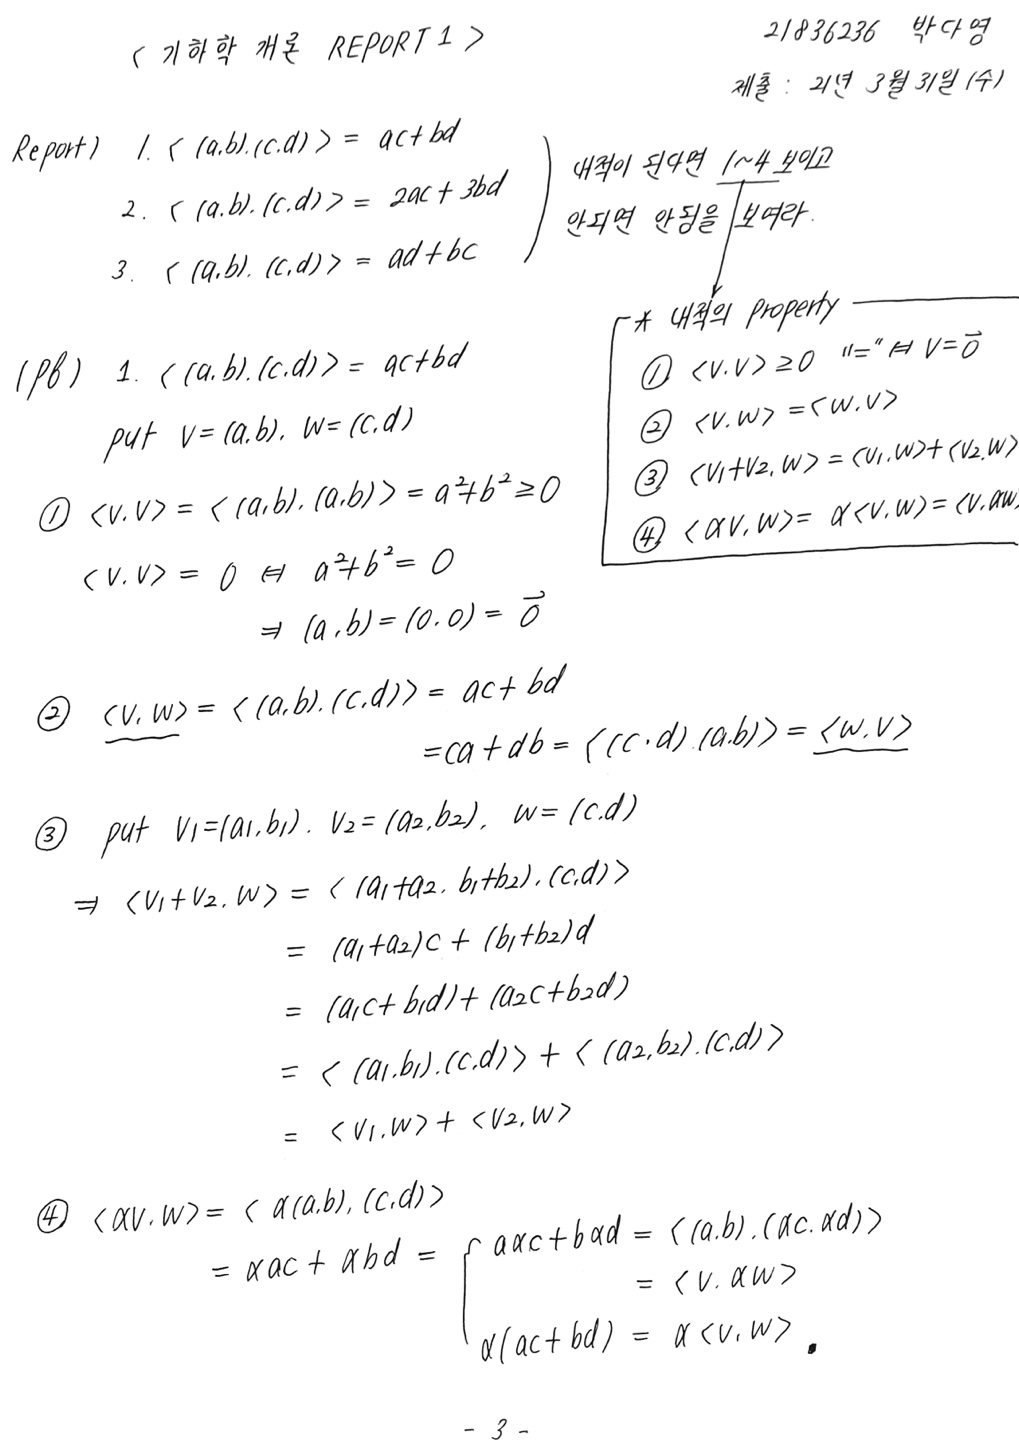 < 기하학 개론 REPORT 1 >
21836236 박다영
제출 : 21년 3월 31일 (수)
Report) 1. < (a.b).(c.d) > = ac+bd
2. < (a.b). (c.d) > = 2ac + 3bd
3. < (a.b). (c.d) > = ad+bc
내적이 된다면 1~4 보이고
안되면 안됨을 보여라.
* 내적의 property
① <v.v> ≥ 0 "=" ⇔ v=0⃗
② <v.w> = <w.v>
③ <v₁+v₂, w> = <v₁.w>+<v₂.w>
④ <αv, w> = α<v.w> = <v.αw>
(pf) 1. < (a.b). (c.d) > = ac+bd
put v=(a.b). w=(c.d)
① <v.v> = < (a.b). (a.b) > = a²+b² ≥ 0
<v.v> = 0 ⇔ a²+b² = 0
⇒ (a.b) = (0.0) = 0⃗
② <v, w> = < (a.b). (c.d) > = ac+ bd
= ca + db = < (c.d).(a.b) > = <w.v>
③ put v₁=(a₁.b₁). v₂=(a₂.b₂). w=(c.d)
⇒ <v₁+v₂. w> = < (a₁+a₂. b₁+b₂). (c.d) >
= (a₁+a₂)c + (b₁+b₂)d
= (a₁c+ b₁d)+ (a₂c+b₂d)
= < (a₁.b₁).(c.d) > + < (a₂,b₂).(c.d) >
= <v₁.w> + <v₂.w>
④ <αv.w> = < α(a.b), (c.d) >
= αac + αbd = { aαc+bαd = < (a.b). (αc.αd) >
= <v. αw>
α(ac+bd) = α<v.w> .
- 3 -